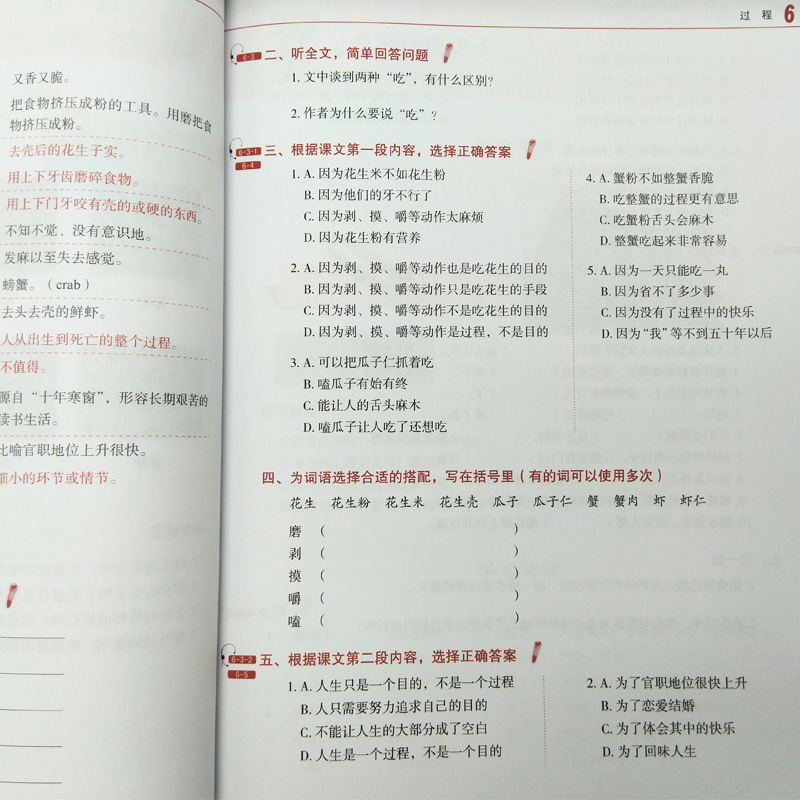 又香又脆。
把食物挤压成粉的工具。用磨把食
物挤压成粉。
去壳后的花生子实。
用上下牙齿磨碎食物。
用上下门牙咬有壳的或硬的东西。
不知不觉、没有意识地。
发麻以至失去感觉。
螃蟹。（crab）
去头去壳的鲜虾。
人从出生到死亡的整个过程。
不值得。
源自“十年寒窗”，形容长期艰苦的
读书生活。
比喻官职地位上升很快。
细小的环节或情节。
过 程 6
6-3
二、听全文，简单回答问题
1. 文中谈到两种“吃”，有什么区别？
2. 作者为什么要说“吃”？
6-3-1
6-4
三、根据课文第一段内容，选择正确答案
1. A. 因为花生米不如花生粉
B. 因为他们的牙不行了
C. 因为剥、摸、嚼等动作太麻烦
D. 因为花生粉有营养
2. A. 因为剥、摸、嚼等动作也是吃花生的目的
B. 因为剥、摸、嚼等动作只是吃花生的手段
C. 因为剥、摸、嚼等动作不是吃花生的目的
D. 因为剥、摸、嚼等动作是过程，不是目的
3. A. 可以把瓜子仁抓着吃
B. 嗑瓜子有始有终
C. 能让人的舌头麻木
D. 嗑瓜子让人吃了还想吃
4. A. 蟹粉不如整蟹香脆
B. 吃整蟹的过程更有意思
C. 吃蟹粉舌头会麻木
D. 整蟹吃起来非常容易
5. A. 因为一天只能吃一丸
B. 因为省不了多少事
C. 因为没有了过程中的快乐
D. 因为“我”等不到五十年以后
四、为词语选择合适的搭配，写在括号里（有的词可以使用多次）
花生 花生粉 花生米 花生壳 瓜子 瓜子仁 蟹 蟹肉 虾 虾仁
磨 （ ）
剥 （ ）
摸 （ ）
嚼 （ ）
嗑 （ ）
6-3-2
6-5
五、根据课文第二段内容，选择正确答案
1. A. 人生只是一个目的，不是一个过程
B. 人只需要努力追求自己的目的
C. 不能让人生的大部分成了空白
D. 人生是一个过程，不是一个目的
2. A. 为了官职地位很快上升
B. 为了恋爱结婚
C. 为了体会其中的快乐
D. 为了回味人生